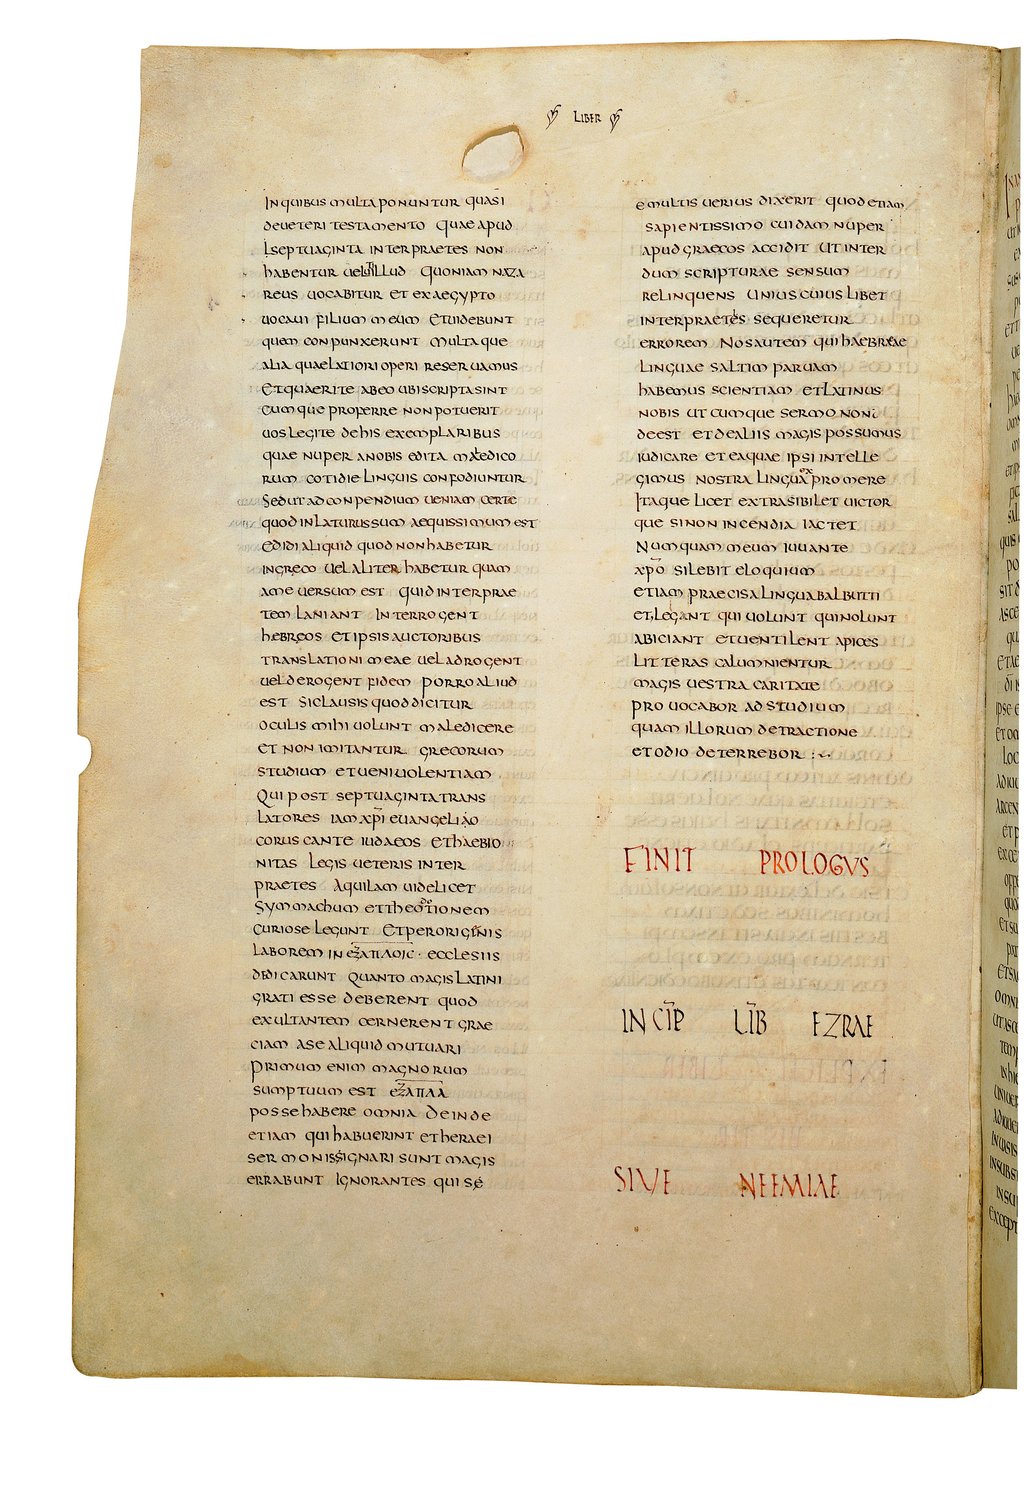 LIBER
In quibus multa ponuntur quasi
deueteri testamento quae apud
lseptuaginta interpraetes non
habentur uel illud quoniam naza
reus uocabitur et ex aegypto
uocaui filium meum et uidebunt
quem conpunxerunt multaque
alia quae latiori operi reseruamus
Et quaerite ab eo ubi scripta sint
cumque proferre non potuerit
uos legite de his exemplaribus
quae nuper a nobis edita maledico
rum cotidie linguis confodiuntur
Sed ut ad conpendium ueniam certe
quod inlaturus sum aequissimum est
edidi aliquid quod non habetur
in greco uel aliter habetur quam
a me uersum est quid interprae
tem laniant interrogent
hebreos et ipsis auctoribus
translationi meae uel adrogent
uel derogent fidem porro aliud
est si clausis quod dicitur
oculis mihi uolunt maledicere
et non imitantur grecorum
studium et ueniuolentiam
Qui post septuaginta trans
latores iam xpi euangelio
coruscante iudaeos et haebio
nitas legis ueteris inter
praetes Aquilam uidelicet
Symmachum et theotionem
curiose legunt Et per origenis
laborem in εζαπλοις · ecclesiis
dedicarunt quanto magis latini
grati esse deberent quod
exultantem cernerent grae
ciam a se aliquid mutuari
primum enim magnorum
sumptuum est εζαπλα
posse habere omnia deinde
etiam qui habuerint et heraei
sermonis signari sunt magis
errabunt ignorantes qui se
e multis uerius dixerit quod etiam
sapientissimo cuidam nuper
apud graecos accidit ut inter
dum scripturae sensum
relinquens uniuscuiuslibet
interpraetes sequeretur
errorem Nos autem qui haebreae
linguae saltim paruam
habemus scientiam et latinus
nobis utcumque sermo non
deest et de aliis magis possumus
iudicare et ea quae ipsi intelle
gimus nostra lingua promere
Itaque licet extrasibilet uictor
que sinon incendia iactet
Numquam meum iuuante
xpo silebit eloquium
etiam praecisa lingua balbutti
et legant qui uolunt qui nolunt
abiciant et uentilent apices
litteras calumnientur
magis uestra caritate
prouocabor ad studium
quam illorum detractione
et odio deterrebor :
FINIT PROLOGVS
INCIP LIB EZRAE
SIVE NEEMIAE